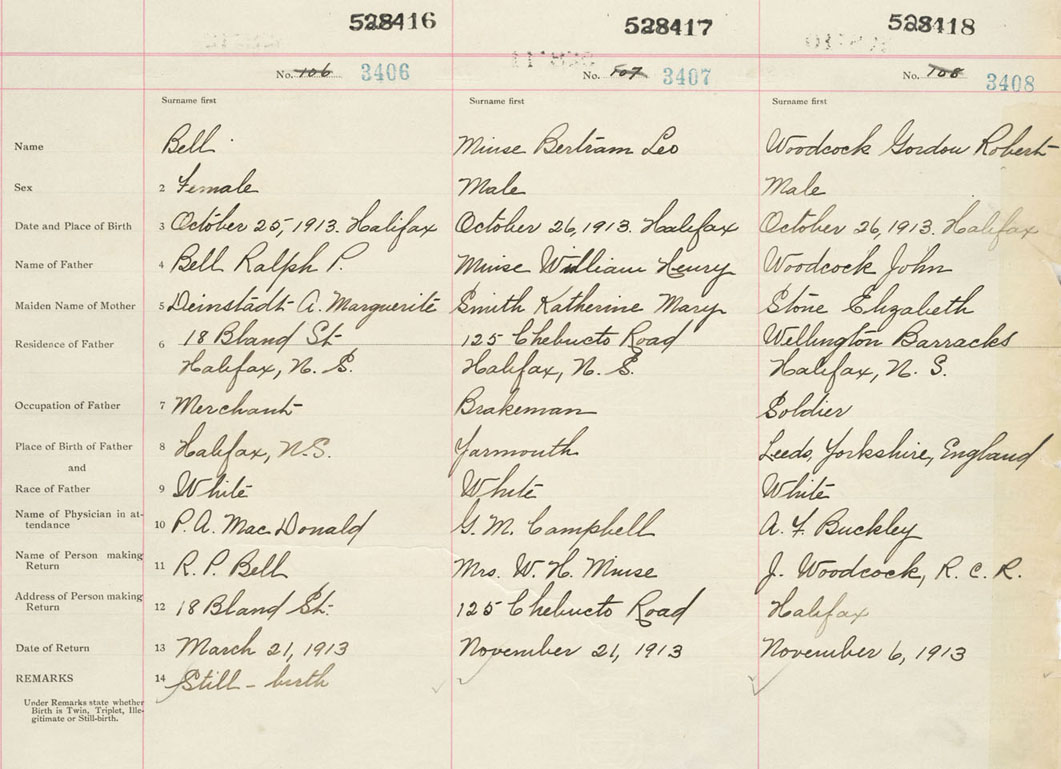 528416 528417 528418
No. 106 3406 No. 107 3407 No. 108 3408
Surname first Surname first Surname first
Name Bell Muise Bertram Leo Woodcock Gordon Robert
Sex 2 Female Male Male
Date and Place of Birth 3 October 25, 1913. Halifax October 26, 1913. Halifax October 26, 1913. Halifax
Name of Father 4 Bell Ralph P. Muise William Henry Woodcock John
Maiden Name of Mother 5 Deinstadt A. Marguerite Smith Katherine Mary Stone Elizabeth
Residence of Father 6 18 Bland St. 125 Chebucto Road Wellington Barracks
Halifax, N. S. Halifax, N. S. Halifax, N. S.
Occupation of Father 7 Merchant Brakeman Soldier
Place of Birth of Father 8 Halifax, N.S. Yarmouth Leeds, Yorkshire, England
and
Race of Father 9 White White White
Name of Physician in at-
tendance 10 P. A. MacDonald G. M. Campbell A. F. Buckley
Name of Person making
Return 11 R. P. Bell Mrs. W. H. Muise J. Woodcock, R. C. R.
Address of Person making
Return 12 18 Bland St. 125 Chebucto Road Halifax
Date of Return 13 March 21, 1913 November 21, 1913 November 6, 1913
REMARKS 14 Still - birth
Under Remarks state whether
Birth is Twin, Triplet, Ille-
gitimate or Still-birth.